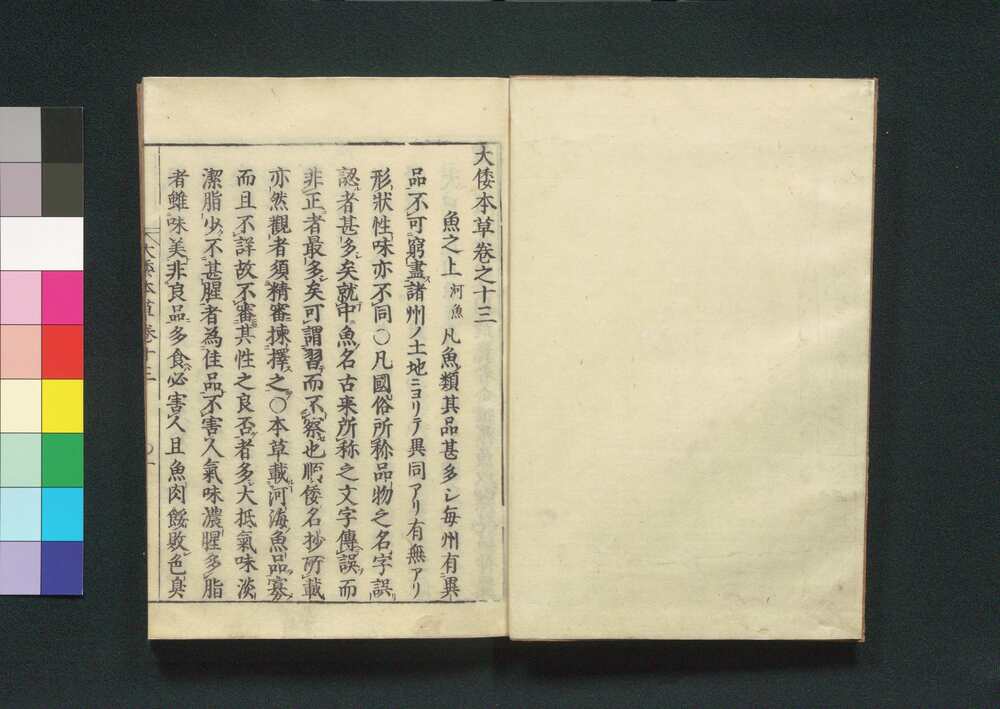 大倭本草卷之十三
魚之上 河魚 凡魚類其品甚多シ毎州有異
品不可窮盡諸州ノ土地ニヨリテ異同アリ有無アリ
形狀性味亦不同〇凡國俗所稱品物之名字誤
認者甚多矣就中魚名古来所称之文字傳誤而
非正者最多矣可謂習而不察也順倭名抄所載
亦然觀者須精審揀擇之〇本草載河海魚品寡
而且不詳故不審其性之良否者多大抵氣味淡
潔脂少不甚腥者為佳品不害人氣味濃腥多脂
者雖味美非良品多食必害人且魚肉餒敗色臭
大倭本草卷十三